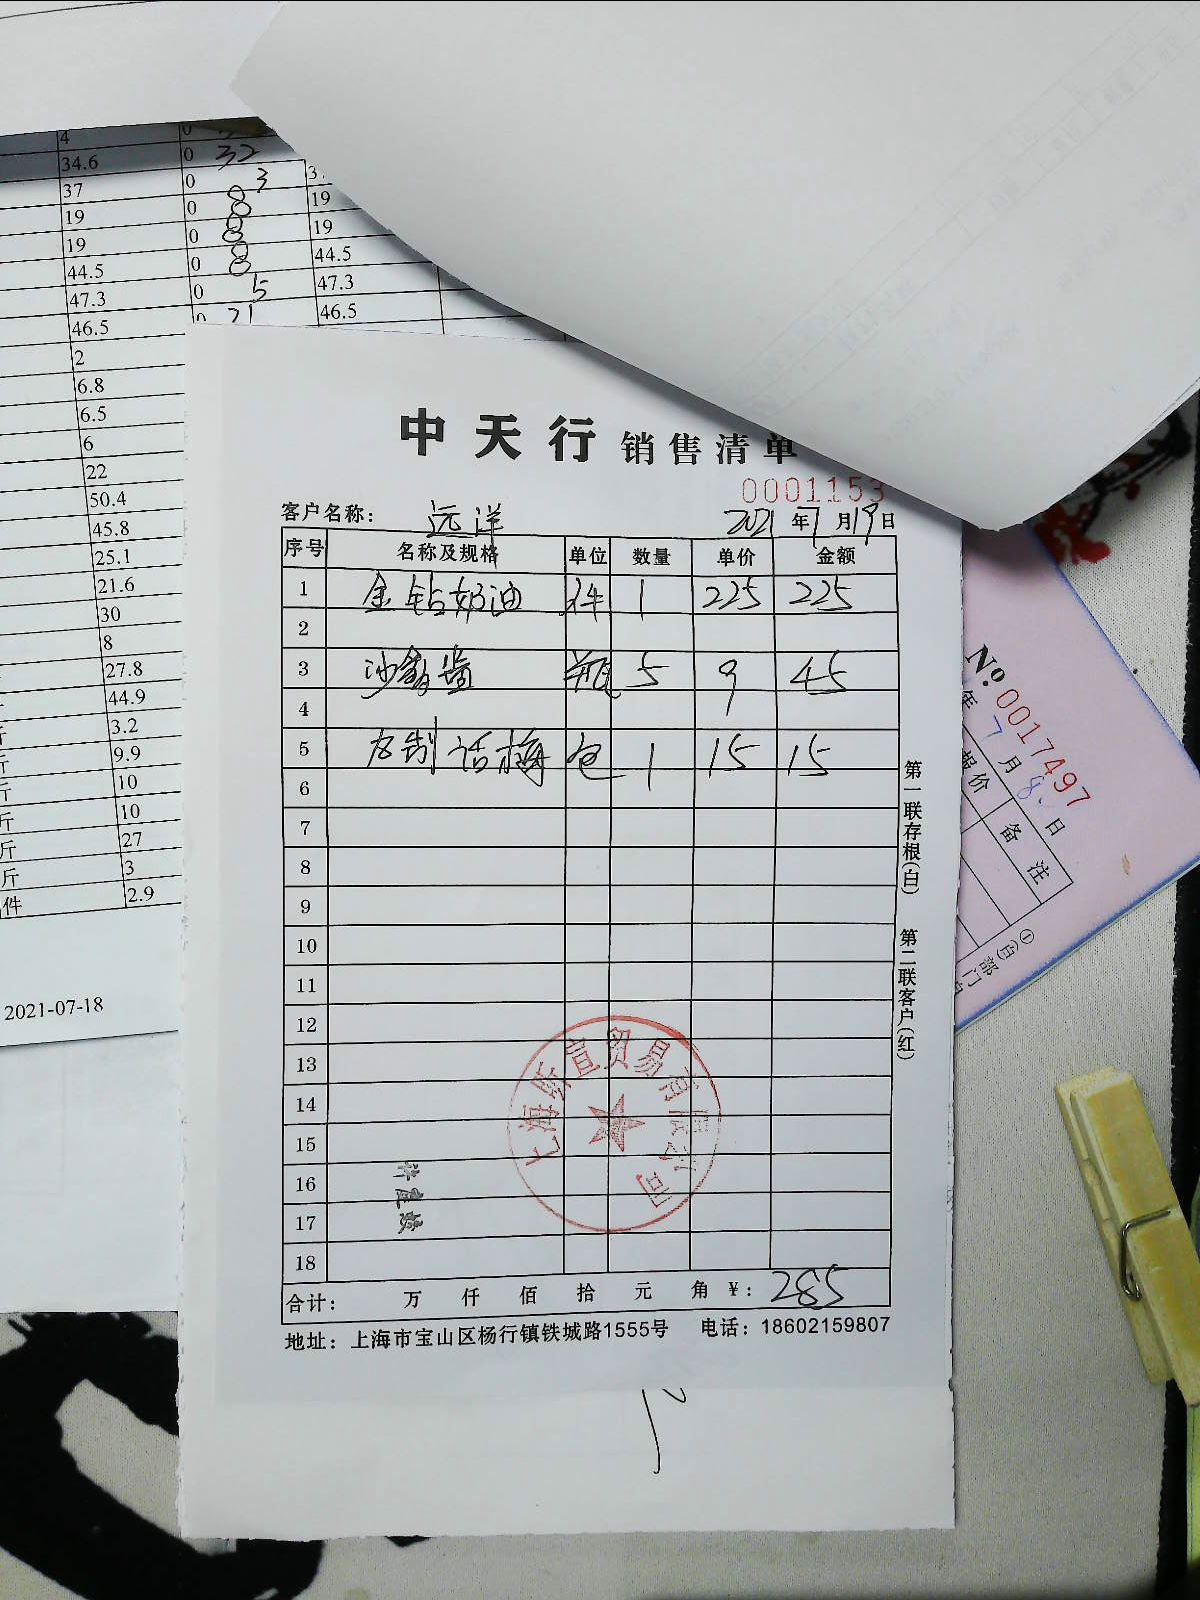 4 0
34.6 0 32
37 0 3 3
19 0 8 19
19 0 8 19
44.5 0 8 44.5
47.3 0 5 47.3
46.5 0 21 46.5
2
6.8
6.5
6
22
50.4
45.8
25.1
21.6
30
8
27.8
44.9
3.2
斤 9.9
斤 10
斤 10
斤 27
斤 3
件 2.9
2021-07-18
中天行 销售清单
0001153
客户名称: 远洋 2021年7月19日
序号 名称及规格 单位 数量 单价 金额
1 金钻奶油 件 1 225 225
2
3 瓶 5 9 45
4
5 九制话梅 包 1 15 15
6
7
8
9
10
11
12
13
14
15
16
17
18
合计: 万 仟 佰 拾 元 角 ¥: 285
地址: 上海市宝山区杨行镇铁城路1555号 电话: 18602159807
第一联存根(白) 第二联客户(红)
No. 0017497
年 7 月 8 日
报价 备注
①(白)部门